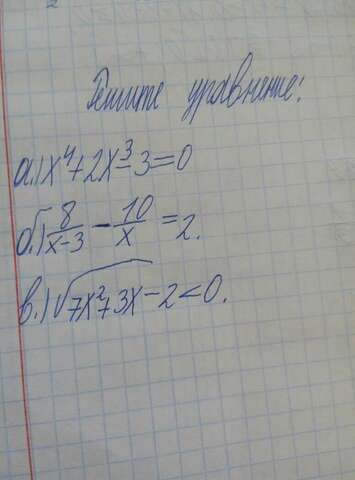 Решите уравнение:
а.) x⁴+2x³-3=0
б.) 8/(x-3) - 10/x = 2.
в.) √(7x²+3x)-2<0.